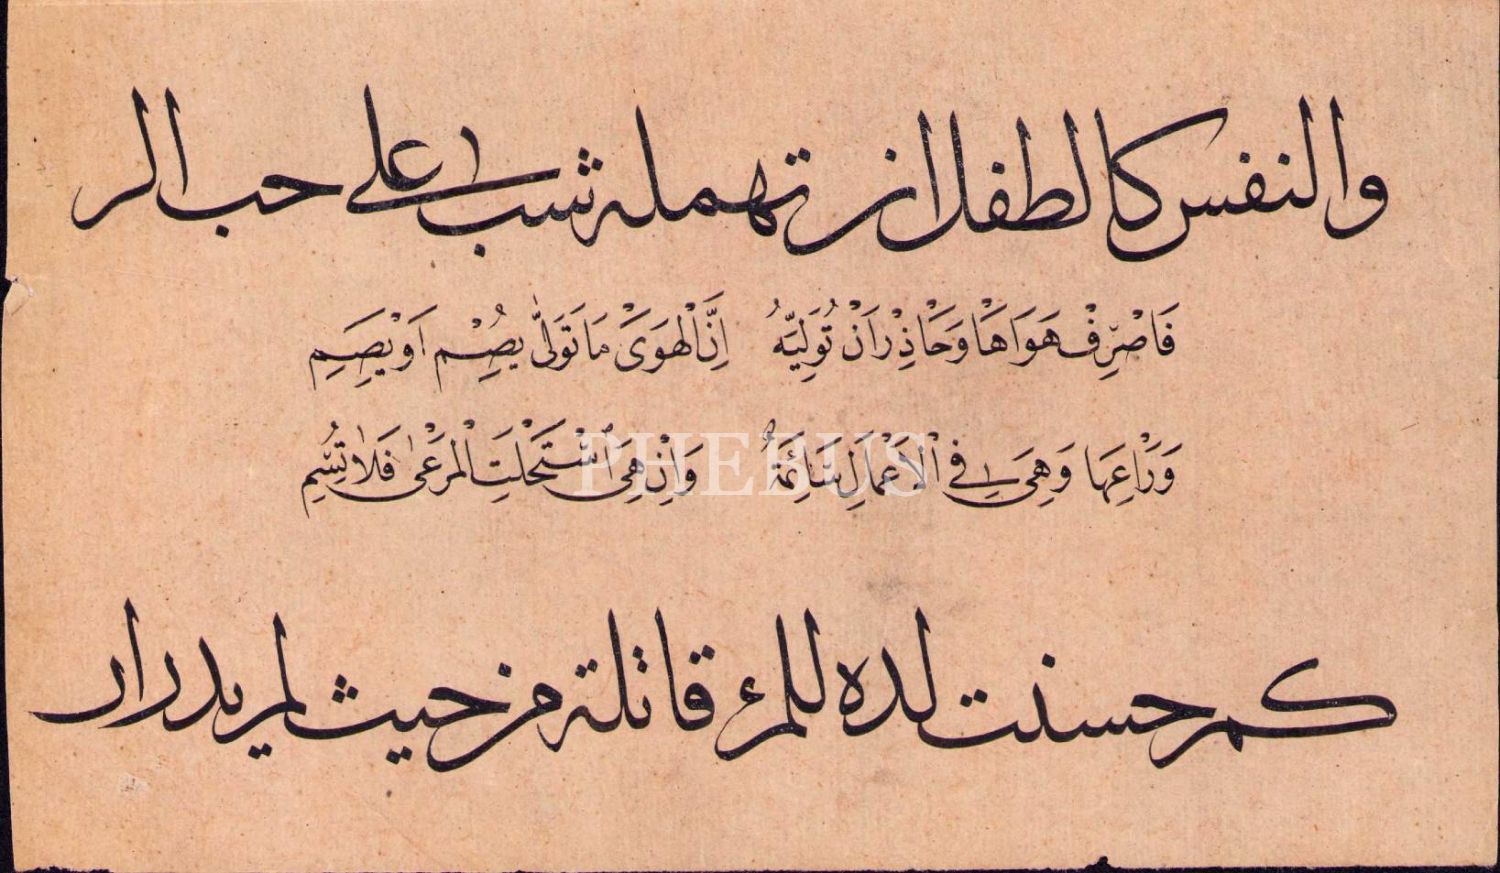 والنفس كالطفل ان تهمله شب على حب الر
فَاصْرِفْ هَوَاهَا وَحَاذِرْ اَنْ تُوَلِّيَهُ اِنَّ الْهَوَىٰ مَا تَوَلّٰى يُصْمِ اَوْ يَصِمِ
وَرَاعِهَا وَهِىَ فِى الْاَعْمَالِ سَائِمَةٌ وَاِنْ هِىَ اسْتَحْلَتِ الْمَرْعٰى فَلَا تُسِمِ
PHEBUS
كم حسنت لذه للمرء قاتلة من حيث لم يدر ان